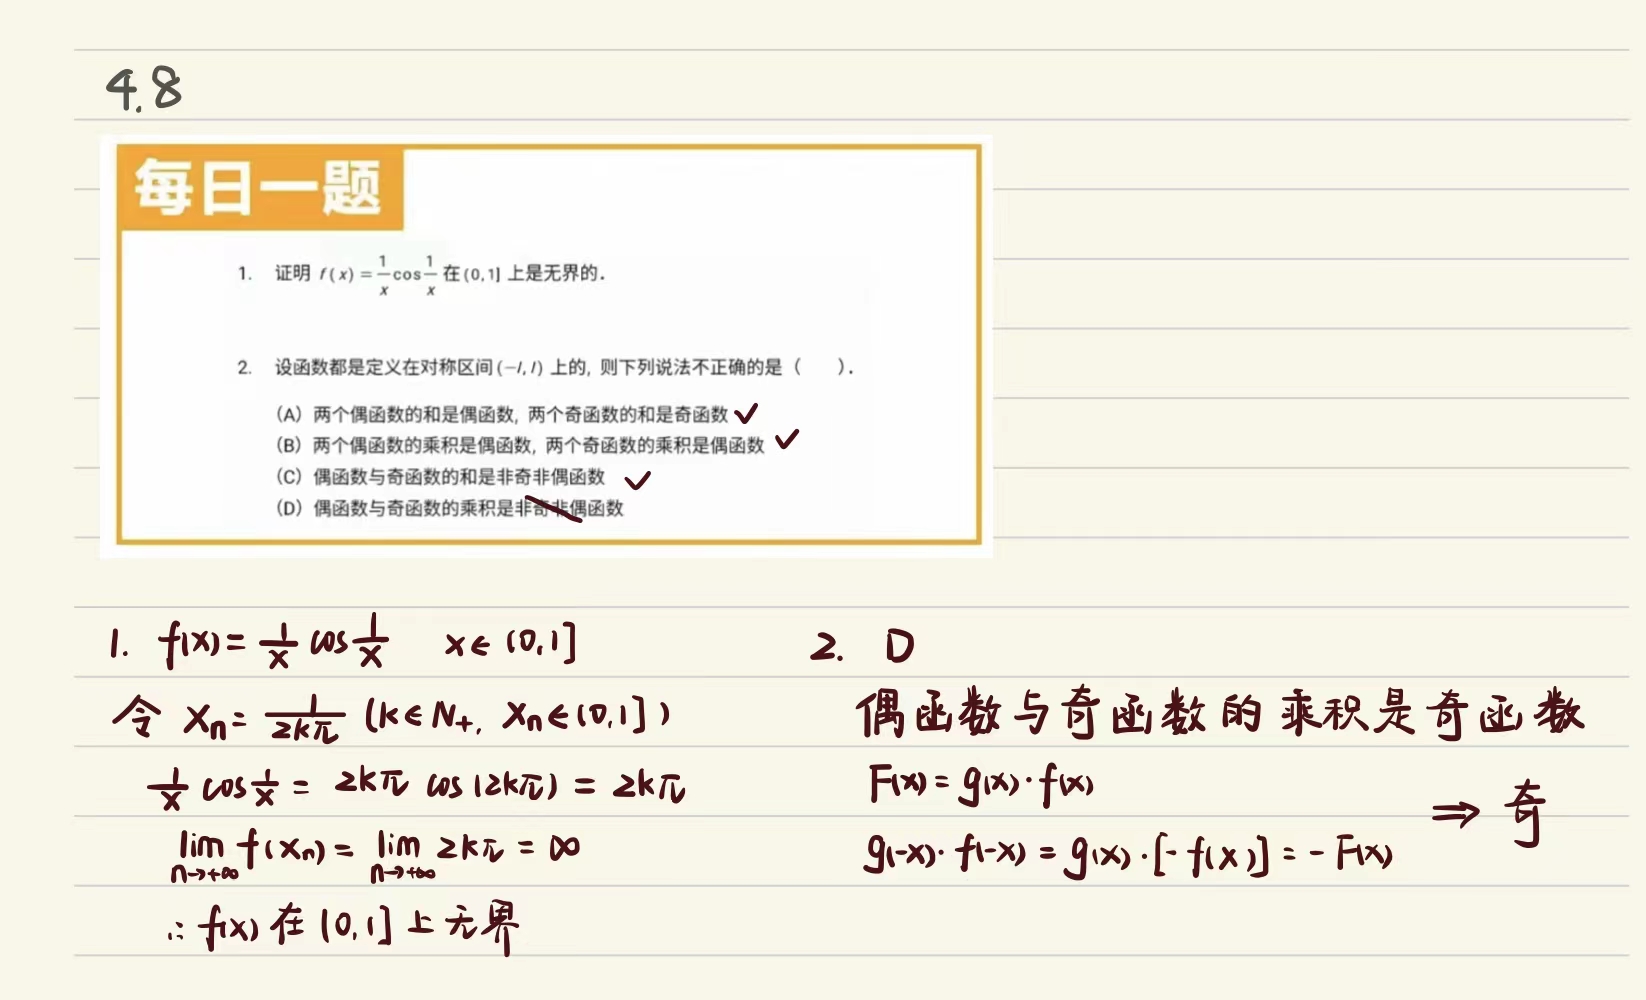 4.8
每日一题
1. 证明 f(x)=1/x cos 1/x 在(0,1]上是无界的.
2. 设函数都是定义在对称区间(-l,l)上的, 则下列说法不正确的是（ ）.
(A) 两个偶函数的和是偶函数, 两个奇函数的和是奇函数 ✓
(B) 两个偶函数的乘积是偶函数, 两个奇函数的乘积是偶函数 ✓
(C) 偶函数与奇函数的和是非奇非偶函数 ✓
(D) 偶函数与奇函数的乘积是非奇非偶函数
1. f(x)= 1/x cos 1/x x∈(0,1]
令 Xn= 1/2kπ (k∈N+, Xn∈(0,1])
1/x cos 1/x = 2kπ cos(2kπ) = 2kπ
lim n→+∞ f(Xn)= lim n→+∞ 2kπ = ∞
∴ f(x) 在(0,1]上无界
2. D
偶函数与奇函数的乘积是奇函数
F(x)= g(x)·f(x)
g(-x)·f(-x) = g(x)·[-f(x)] = -F(x)
⇒ 奇